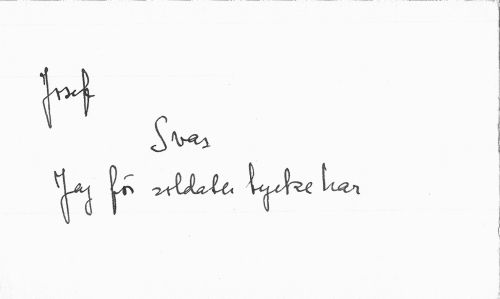 Josef
Svar
Jag för soldater tycke har